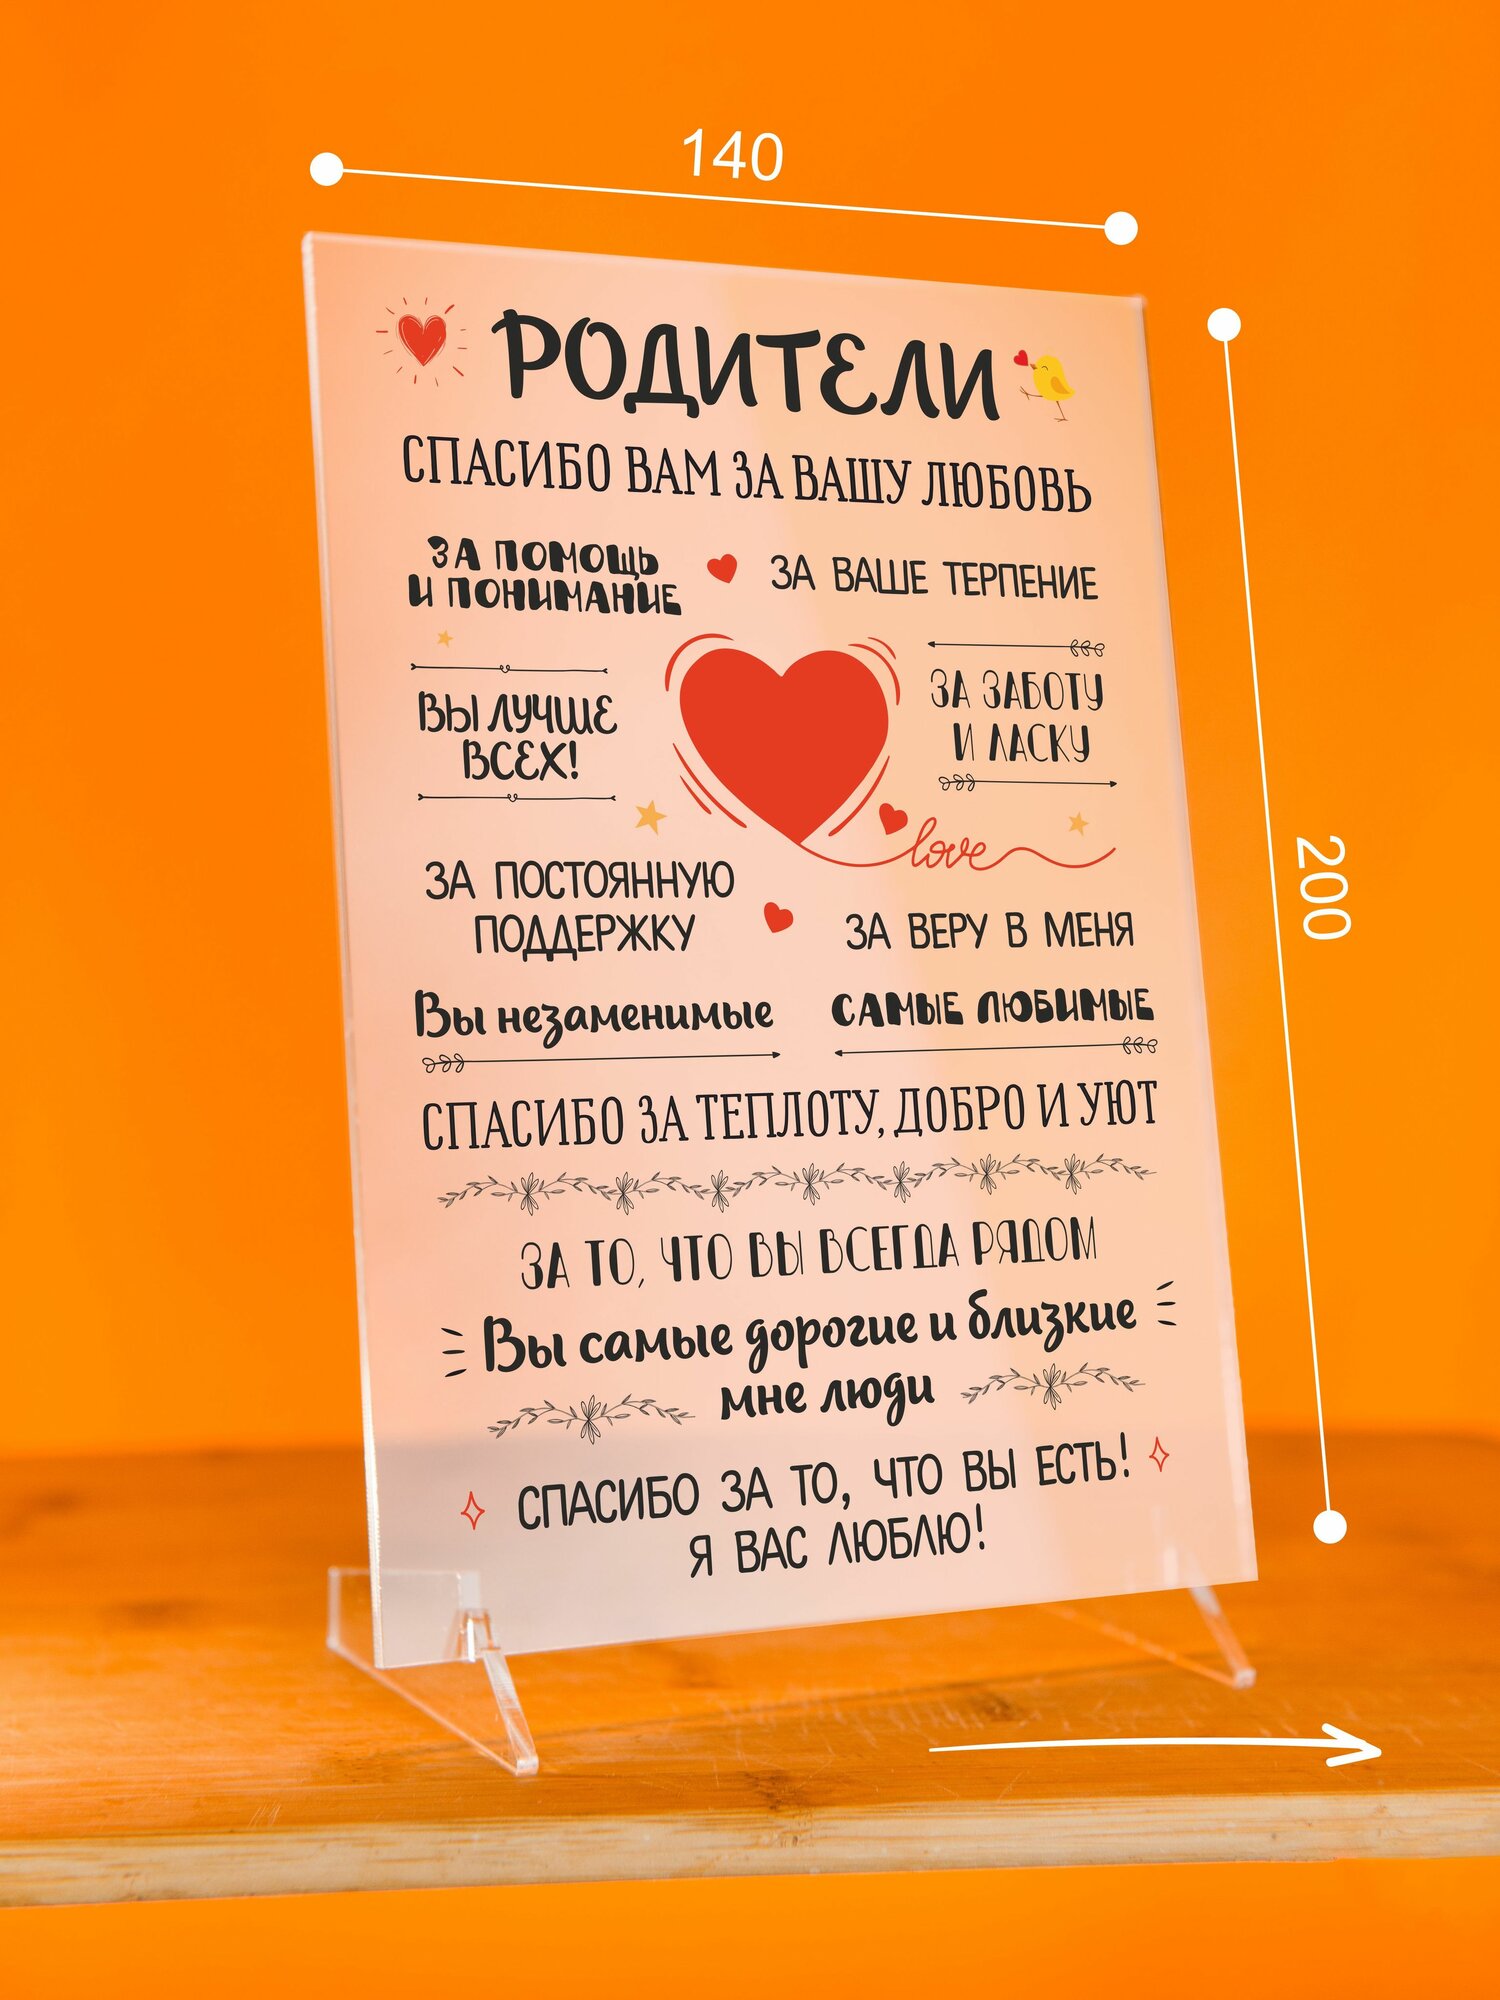 140
РОДИТЕЛИ
СПАСИБО ВАМ ЗА ВАШУ ЛЮБОВЬ
ЗА ПОМОЩЬ
И ПОНИМАНИЕ
ЗА ВАШЕ ТЕРПЕНИЕ
ВЫ ЛУЧШЕ
ВСЕХ!
ЗА ЗАБОТУ
И ЛАСКУ
love
200
ЗА ПОСТОЯННУЮ
ПОДДЕРЖКУ
ЗА ВЕРУ В МЕНЯ
Вы незаменимые
САМЫЕ ЛЮБИМЫЕ
СПАСИБО ЗА ТЕПЛОТУ, ДОБРО И УЮТ
ЗА ТО, ЧТО ВЫ ВСЕГДА РЯДОМ
Вы самые дорогие и близкие
мне люди
СПАСИБО ЗА ТО, ЧТО ВЫ ЕСТЬ!
Я ВАС ЛЮБЛЮ!